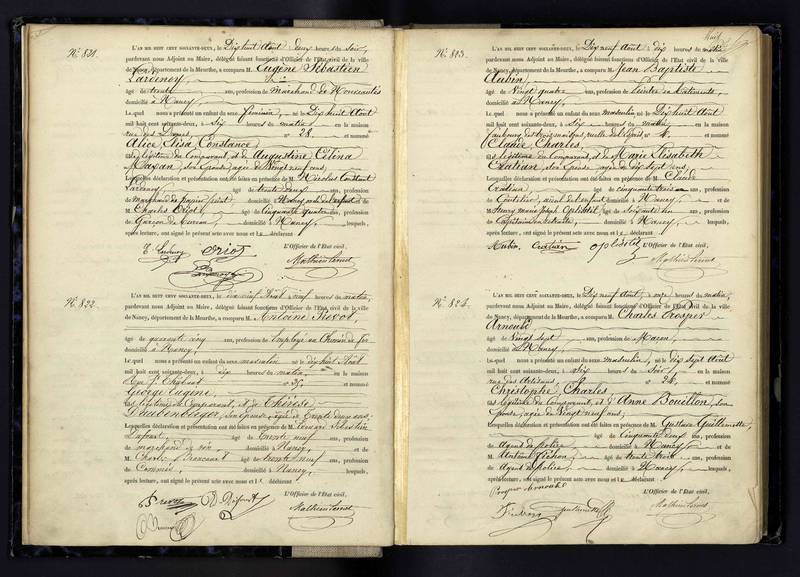 N°. 821.
L'AN MIL HUIT CENT SOIXANTE-DEUX, le Dix huit Août deux heures du soir,
pardevant nous Adjoint au Maire, délégué faisant fonctions d'Officier de l'Etat civil de la ville
de Nancy, Département de la Meurthe, a comparu M. Eugène Sébastien
âgé de trente ans, profession de Marchand de
domicilié à Nancy,
Lequel nous a présenté un enfant du sexe féminin, né le Dix huit Août
mil huit cent soixante-deux, à six heures du matin en la maison
rue des Dames, n° 28. et nommé
Alice Lisa Constance
fils légitime du Comparant, et de Augustine Célina
son Épouse, agée de Vingt neuf ans
Lesquelles déclaration et présentation ont été faites en présence de M. Nicolas Constant
âgé de trente deux ans, profession
de Marchand de papier peint domicilié à Nancy et de
M. Charles Oriot, âgé de Cinquante quatre ans, profession
de Garçon de bureau domicilié à Nancy, lesquels,
après lecture, ont signé le présent acte avec nous et le déclarant
Oriot
L'Officier de l'Etat civil,
N°. 822.
L'AN MIL HUIT CENT SOIXANTE-DEUX, le dix neuf Août à neuf heures du matin,
pardevant nous Adjoint au Maire, délégué faisant fonctions d'Officier de l'Etat civil de la ville
de Nancy, Département de la Meurthe, a comparu M. Antoine Prevot,
âgé de quarante cinq ans, profession de Employé au Chemin de fer
domicilié à Nancy,
Lequel nous a présenté un enfant du sexe masculin né le dix huit Août
mil huit cent soixante-deux, à dix heures du matin, en la maison
et nommé
George Eugène,
fils légitime du Comparant, et de Thérèse
Daubenberger, son épouse agée de Trente deux ans,
Lesquelles déclaration et présentation ont été faites en présence de M. Sébastien
âgé de Trente neuf ans, profession
de marchand de vin domicilié à Nancy, et de
M. Charles âgé de trente neuf ans, profession
de Commis, domicilié à Nancy, lesquels,
après lecture, ont signé le présent acte avec nous et le déclarant
L'Officier de l'Etat civil,
N°. 823.
L'AN MIL HUIT CENT SOIXANTE-DEUX, le Dix neuf Août à dix heures du matin
pardevant nous Adjoint au Maire, délégué faisant fonctions d'Officier de l'Etat civil de la ville
de Nancy, Département de la Meurthe, a comparu M. Jean Baptiste
Aubin,
âgé de Vingt quatre ans, profession de Peintre en batiments,
domicilié à Nancy,
Lequel nous a présenté un enfant du sexe masculin né le Dix huit Août
mil huit cent soixante-deux, à six heures du matin en la maison
faubourg des trois maisons, n° 4, et nommé
Claude Charles,
fils légitime du Comparant, et de Marie Elisabeth
Cratian, son Épouse, agée de dix sept ans,
Lesquelles déclaration et présentation ont été faites en présence de M. Claude
Cratian âgé de cinquante trois ans, profession
de Coutelier, domicilié à Nancy, et de
M. Henry Marie Joseph âgé de soixante un ans, profession
de Capitaine en retraite domicilié à Nancy, lesquels,
après lecture, ont signé le présent acte avec nous et le déclarant
Aubin. Cratian
L'Officier de l'Etat civil,
N°. 824.
L'AN MIL HUIT CENT SOIXANTE-DEUX, le Dix neuf Août, onze heures du matin,
pardevant nous Adjoint au Maire, délégué faisant fonctions d'Officier de l'Etat civil de la ville
de Nancy, Département de la Meurthe, a comparu M. Charles Prosper
Arnould
âgé de Vingt sept ans, profession de Maçon
domicilié à Nancy,
Lequel nous a présenté un enfant du sexe masculin, né le dix sept Août
mil huit cent soixante-deux, à six heures du Soir, en la maison
rue des Artisans, n° 24, et nommé
Christophe Charles,
fils légitime du Comparant, et d'Anne Bouillon, son
Épouse, agée de Vingt neuf ans,
Lesquelles déclaration et présentation ont été faites en présence de M. Gustave Guillemette,
âgé de Cinquante deux ans, profession
de Agent de police domicilié à Nancy et de
M. Antoine âgé de trente trois ans, profession
de Agent de police, domicilié à Nancy, lesquels,
après lecture, ont signé le présent acte avec nous et le déclarant
Prosper Arnould
L'Officier de l'Etat civil,